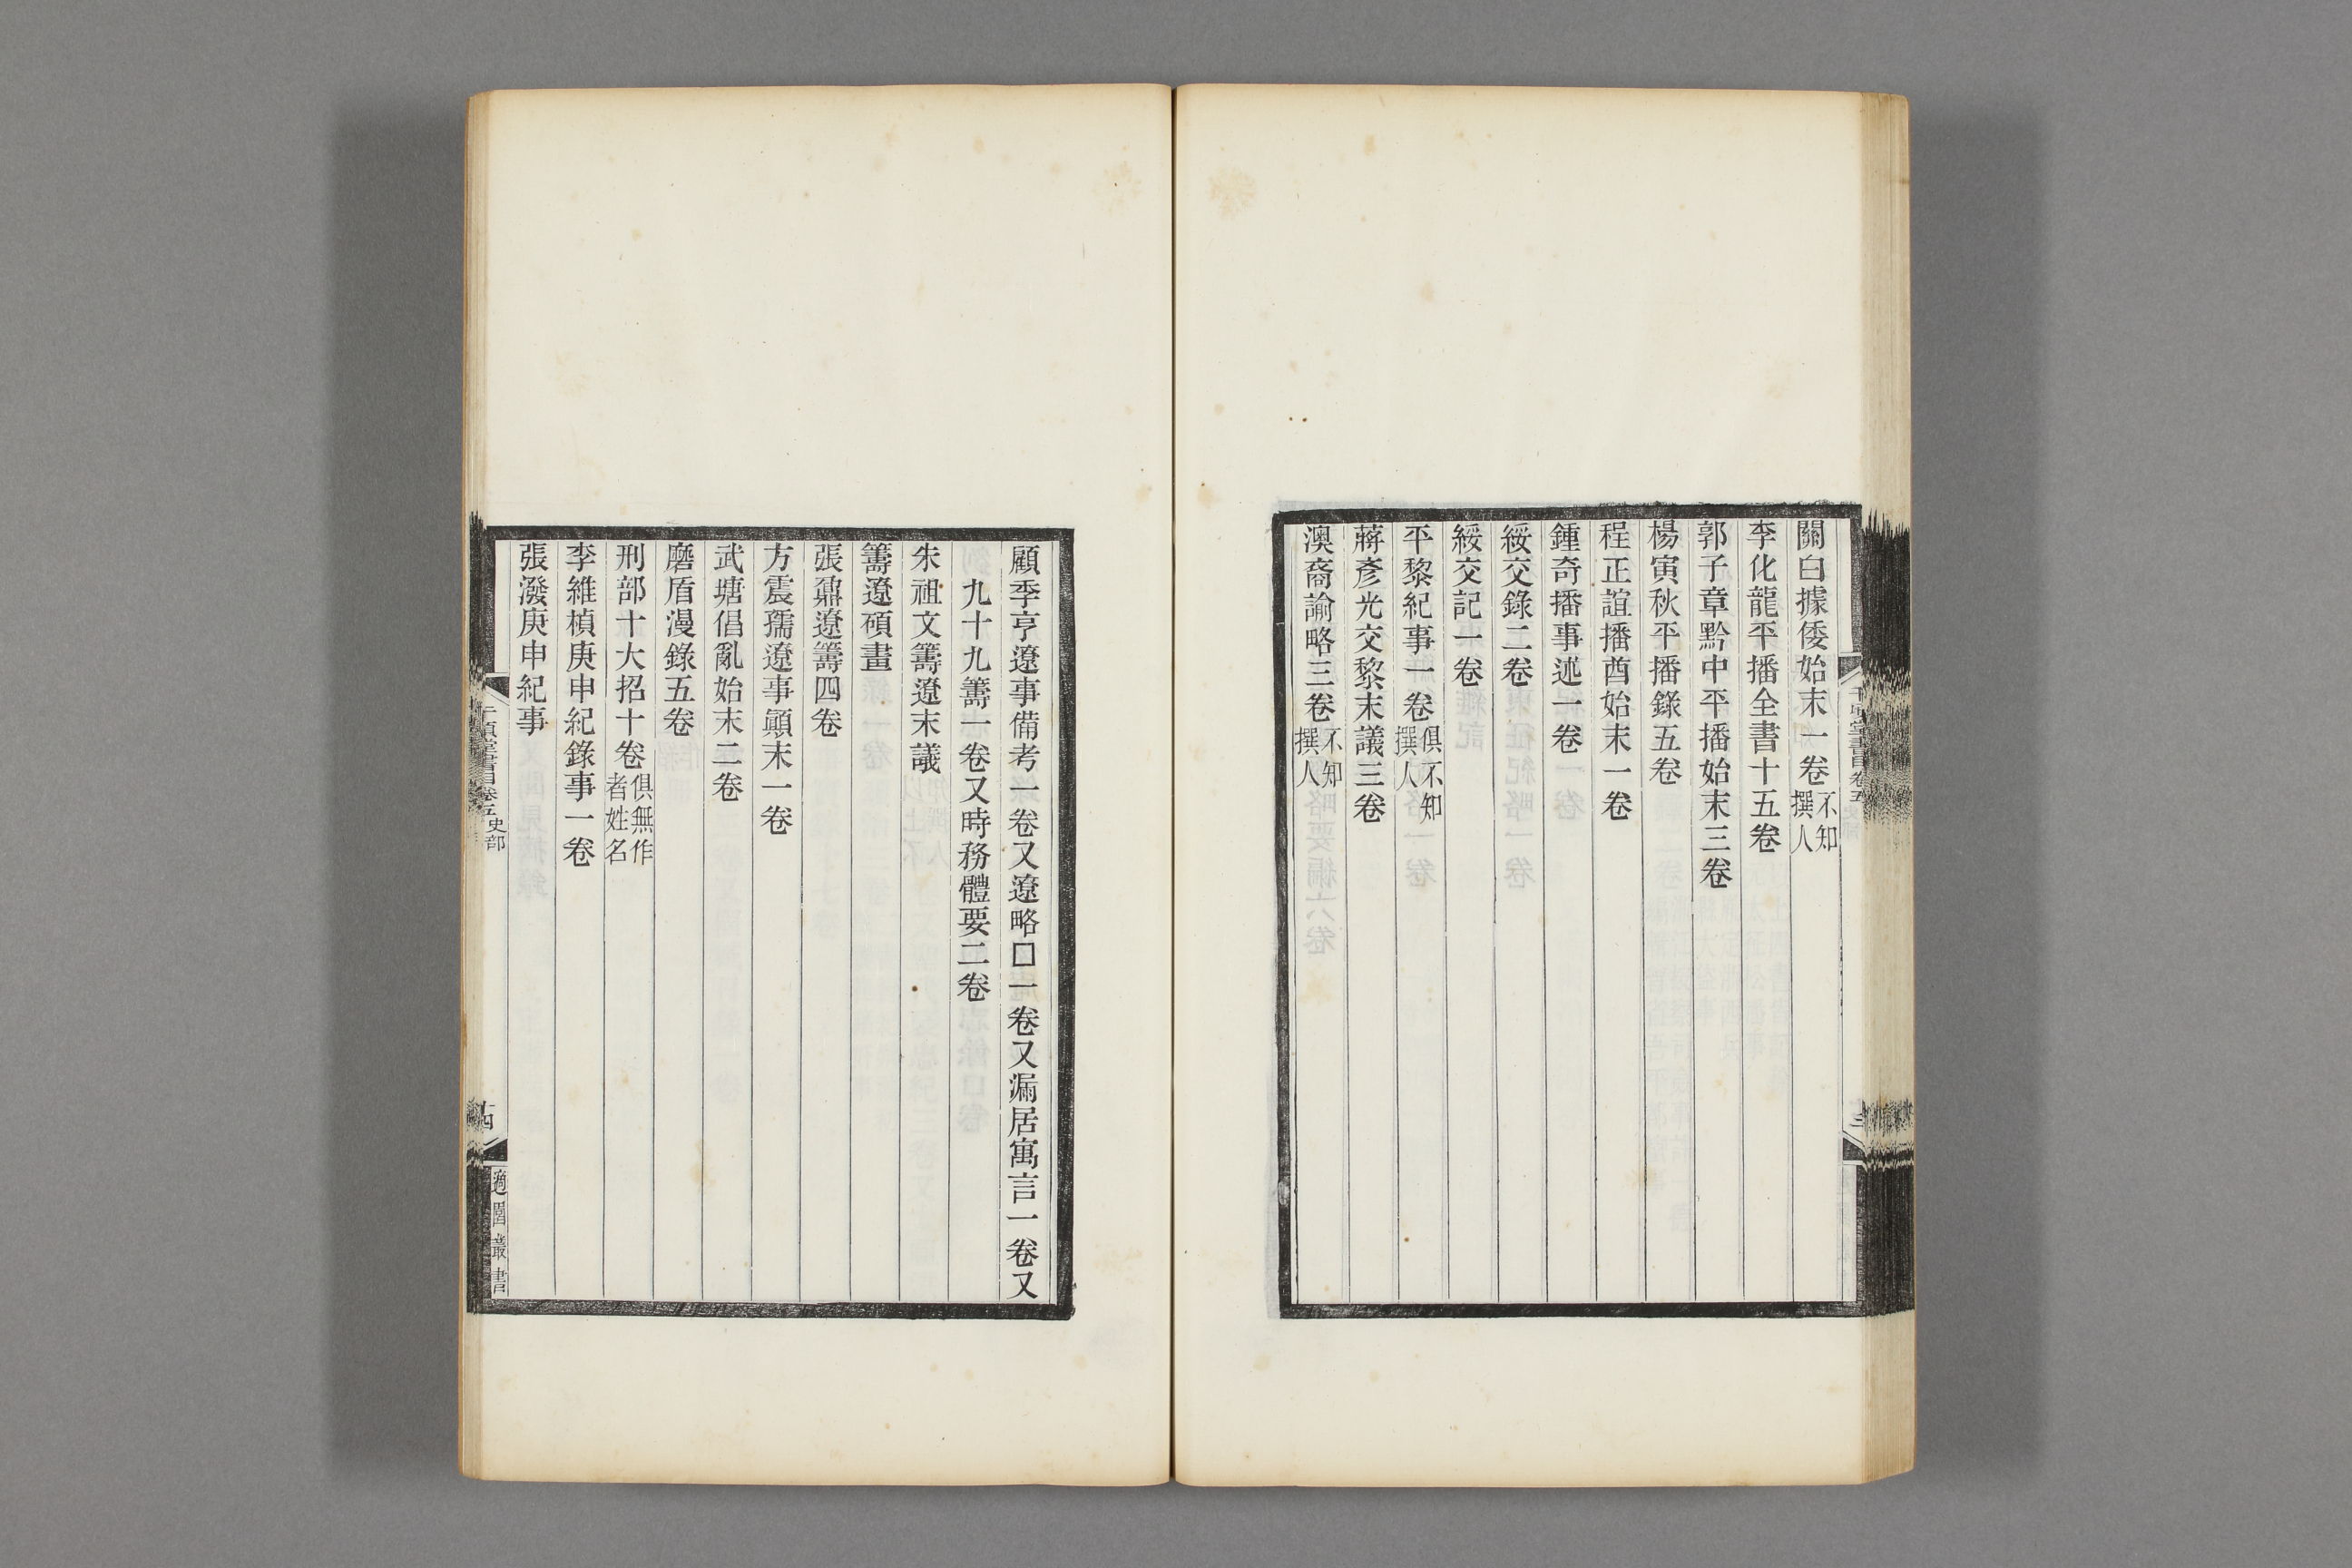 關白據倭始末一卷不知撰人
李化龍平播全書十五卷
郭子章黔中平播始末三卷
楊寅秋平播錄五卷
程正誼播酋始末一卷
鍾奇播事述一卷
綏交錄二卷
綏交記一卷
平黎紀事一卷俱不知撰人
蔣彥光交黎末議三卷
澳裔諭略三卷不知撰人
顧季亨遼事備考一卷又遼略□一卷又漏居寓言一卷又
九十九籌一卷又時務體要二卷
朱祖文籌遼末議
籌遼碩畫
張鼐遼籌四卷
方震孺遼事顚末一卷
武塘倡亂始末二卷
磨盾漫錄五卷
刑部十大招十卷俱無作者姓名
李維楨庚申紀錄事一卷
張潑庚申紀事
千頃堂書目卷五 史部
十四
適園叢書